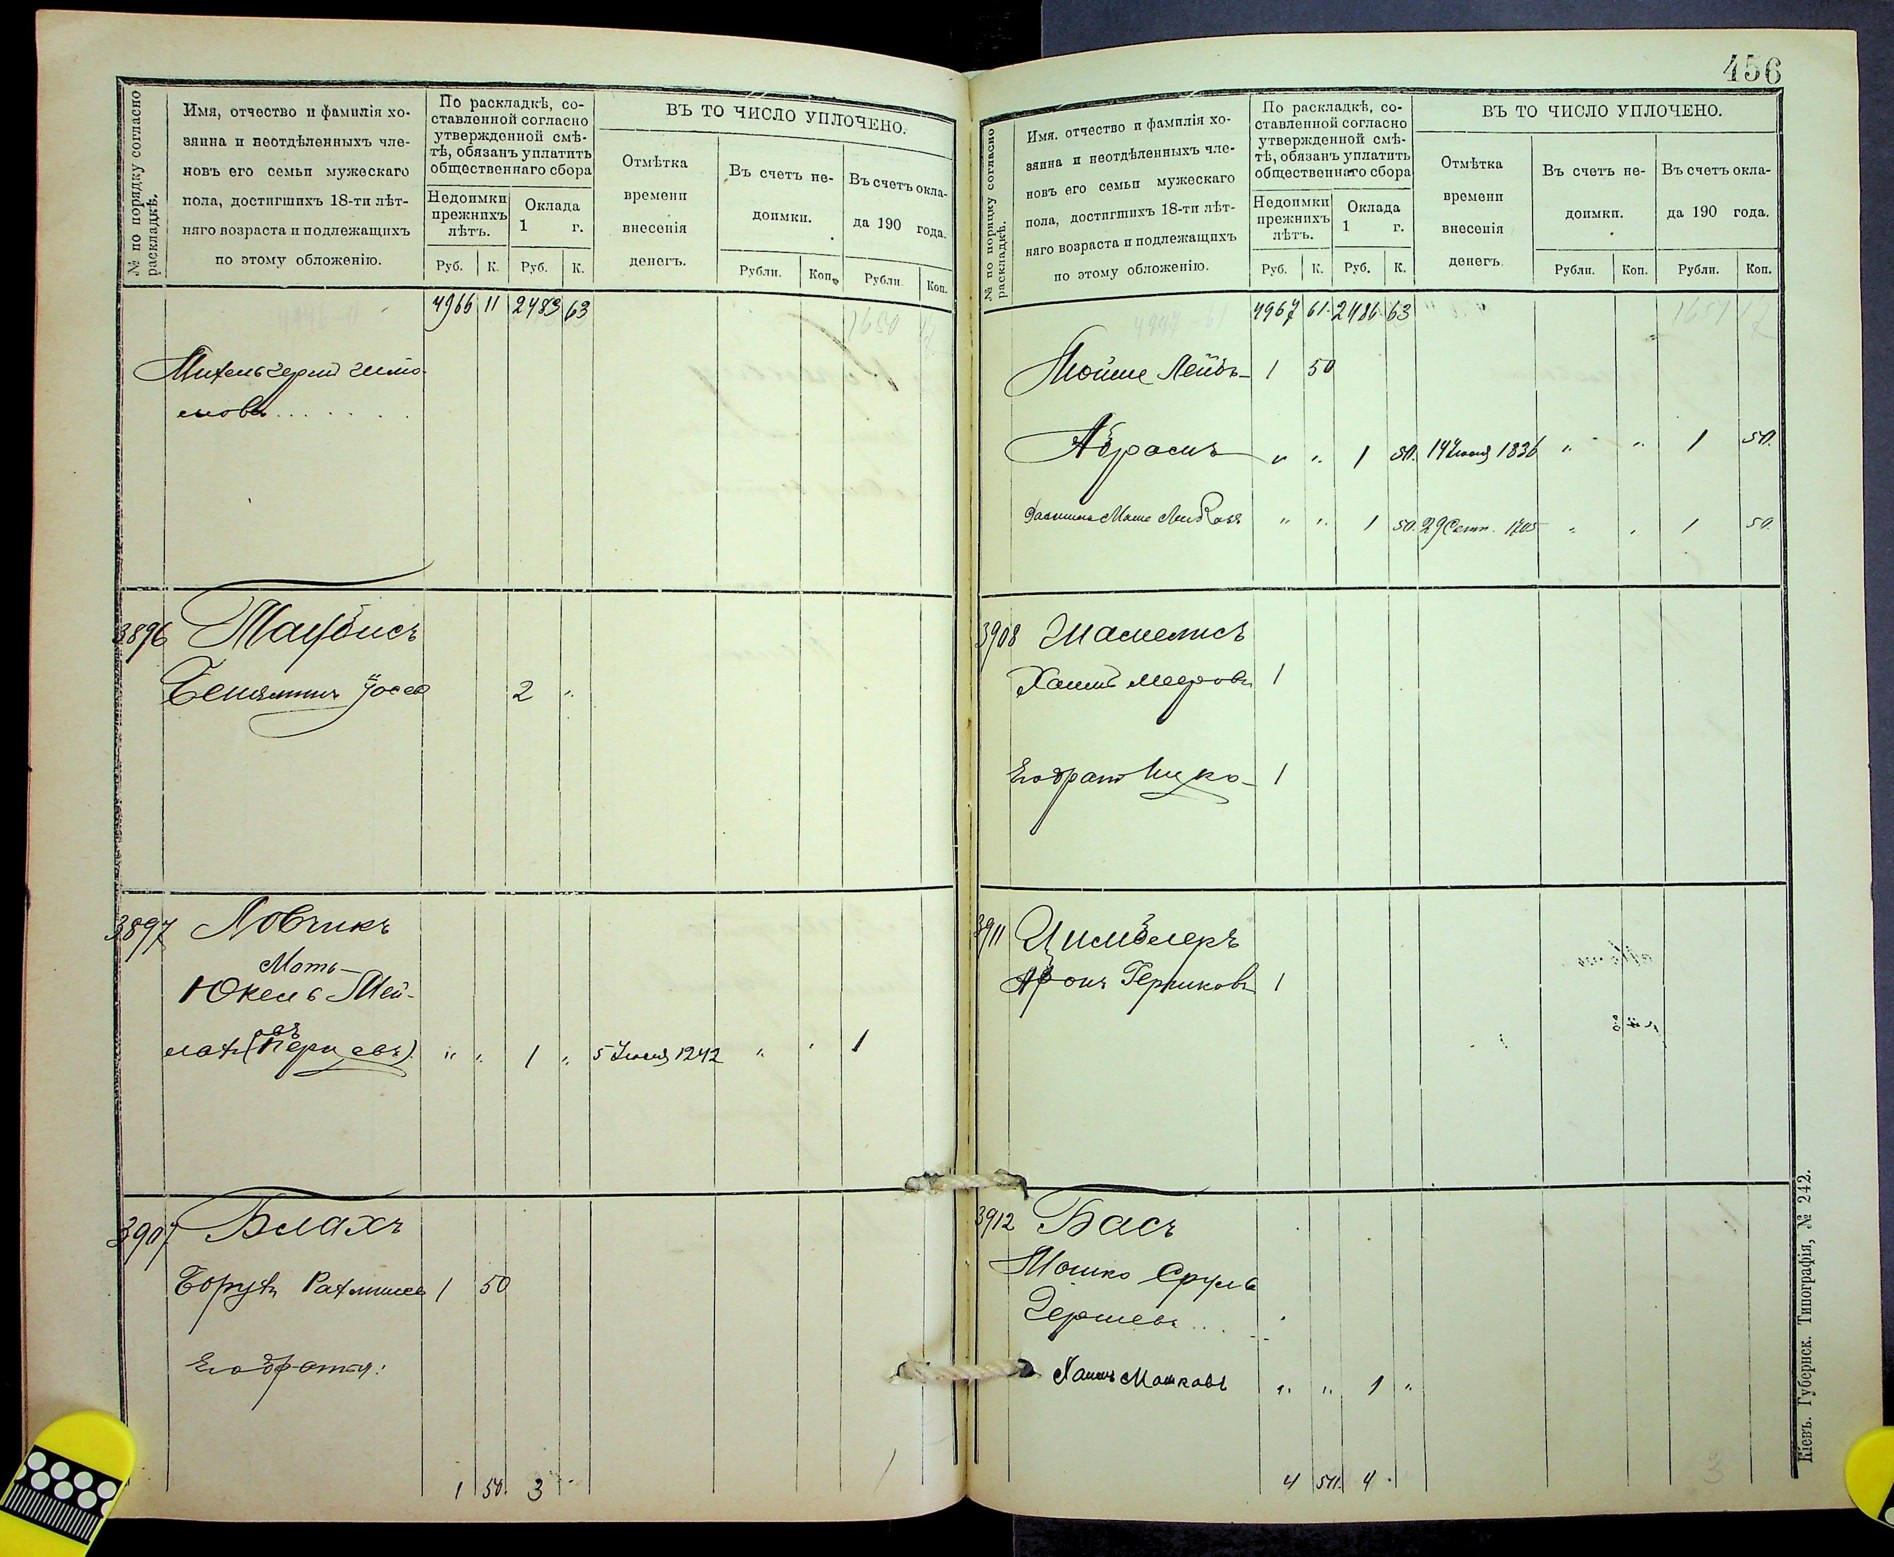 № по порядку согласно раскладкѣ.
Имя, отчество и фамилія хо-
зяина и неотдѣленныхъ чле-
новъ его семьи мужескаго
пола, достигшихъ 18-ти лѣт-
няго возраста и подлежащихъ
по этому обложенію.
По раскладкѣ, со-
ставленной согласно
утвержденной смѣ-
тѣ, обязанъ уплатить
общественнаго сбора
Недоимки
прежнихъ
лѣтъ.
Оклада
1 г.
Руб. К. Руб. К.
ВЪ ТО ЧИСЛО УПЛОЧЕНО.
Отмѣтка
времени
внесенія
денегъ.
Въ счетъ не-
доимки.
Въ счетъ окла-
да 190 года.
Рубли. Коп. Рубли. Коп.
4966 11 2483 63
3896
Бенямин Йосев 2 "
3897 Ловчикъ
Мать
Юкель Мей-
" " 1 " 5 Июня 1242 " " 1
3907 Блахъ
Борухъ 1 50
Его братья:
1 50. 3
456
№ по порядку согласно раскладкѣ.
Имя, отчество и фамилія хо-
зяина и неотдѣленныхъ чле-
новъ его семьи мужескаго
пола, достигшихъ 18-ти лѣт-
няго возраста и подлежащихъ
по этому обложенію.
По раскладкѣ, со-
ставленной согласно
утвержденной смѣ-
тѣ, обязанъ уплатить
общественнаго сбора
Недоимки
прежнихъ
лѣтъ.
Оклада
1 г.
Руб. К. Руб. К.
ВЪ ТО ЧИСЛО УПЛОЧЕНО.
Отмѣтка
времени
внесенія
денегъ.
Въ счетъ не-
доимки.
Въ счетъ окла-
да 190 года.
Рубли. Коп. Рубли. Коп.
4967 61 2486 63
Мойше Лейбъ 1 50
Абрамъ " " 1 50. 14 Июня 1836 " " 1 50.
" " 1 50. 29 Сент. 1705 " " 1 50.
3908 Шамелисъ
Хаимъ Мееровъ 1
Его братъ Ицко 1
3911 Цимблеръ
Аронъ Гершковъ 1
3912 Басъ
Мошко Сруль
Гершевъ...
Хаимъ Мошковъ " " 1 "
4 50. 4
3
Кіевъ. Губернск. Типографія, № 242.